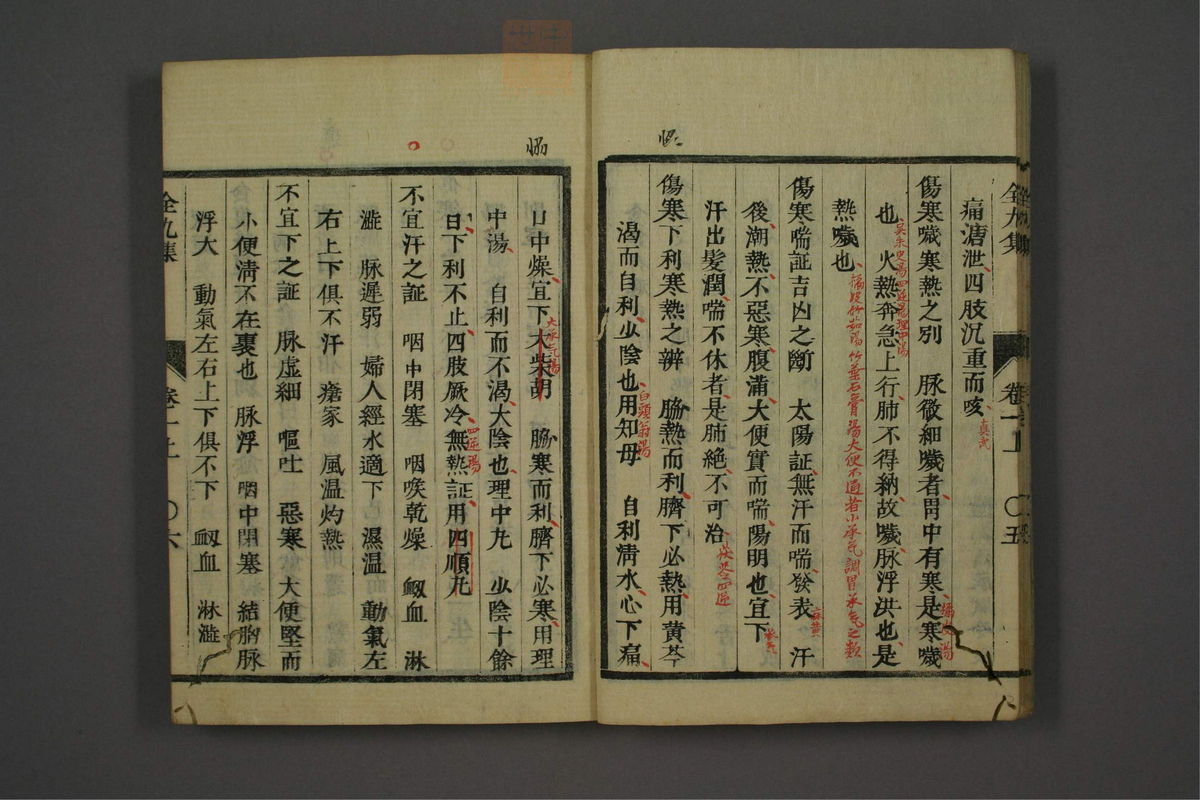 痛溏泄四肢沉重而咳
真武
傷寒噦寒熱之別　脉微細噦者胃中有寒是寒噦
橘皮湯
也　火熱奔急上行肺不得納故噦脉浮洪也是
熱噦也
橘皮竹茹湯竹葉石膏湯大便不通者小承气調胃承气之類
傷寒喘証吉凶之斷　太陽証無汗而喘發表　汗
麻黄
後潮熱不惡寒腹滿大便實而喘陽明也宜下
汗出髮潤喘不休者是肺絶不可治
傷寒下利寒熱之辨　脇熱而利臍下必熱用黄芩
渴而自利少陰也用知母　自利清水心下痛
白頭翁湯
全九集　卷一上　〇五
口中燥宜下大柴胡　脇寒而利臍下必寒用理
大承气湯
中湯　自利而不渴大陰也理中丸　少陰十餘
日下利不止四肢厥冷無熱証用四順丸
四逆湯
不宜汗之証　咽中閉塞　咽喉乾燥　衂血　淋
澁　脉遲弱　婦人經水適下　濕温　動氣左
右上下俱不汗　瘡家　風温灼熱
不宜下之証　脉虚細　嘔吐　惡寒　大便堅而
小便清不在裏也　脉浮　咽中閉塞　結胸脉
浮大　動氣左右上下俱不下　衂血　淋澁
全九集　卷一上　〇六